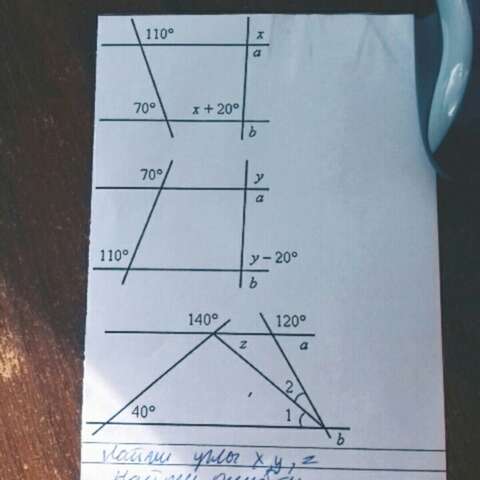 110° x
a
70° x + 20°
b
70° y
a
110° y − 20°
b
140° 120°
z a
2
40° 1
b
Найти углы x, y, z